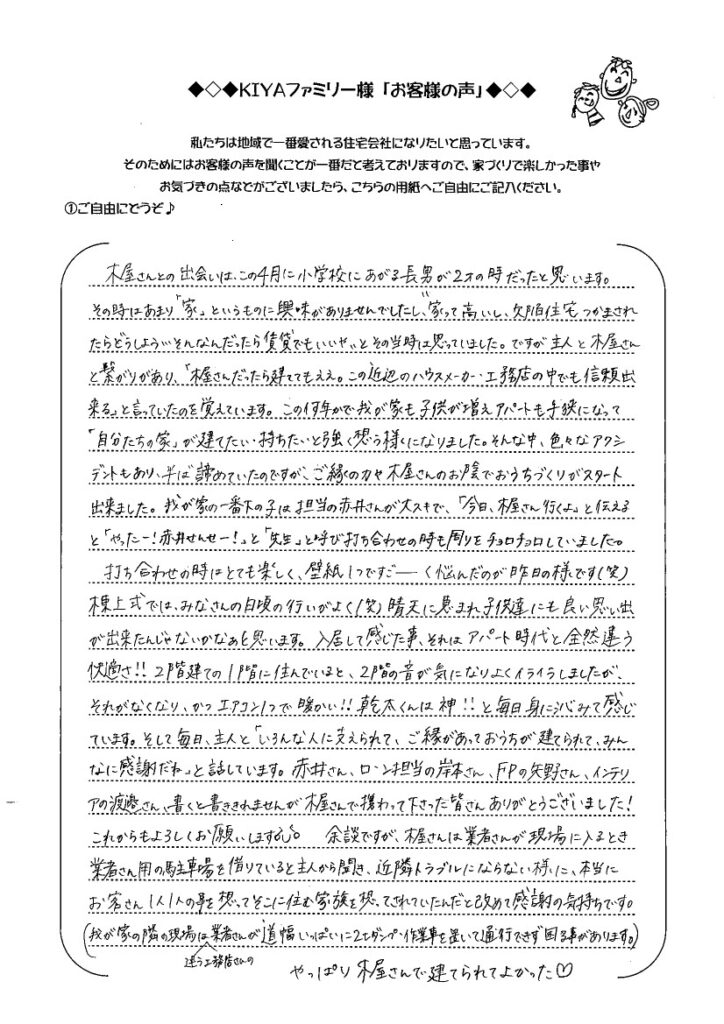 ◆◇◆KIYAファミリー様「お客様の声」◆◇◆
私たちは地域で一番愛される住宅会社になりたいと思っています。
そのためにはお客様の声を聞くことが一番だと考えておりますので、家づくりで楽しかった事や
お気づきの点などがございましたら、こちらの用紙へご自由にご記入ください。
①ご自由にどうぞ♪
木屋さんとの出会いは、この4月に小学校にあがる長男が2才の時だったと思います。
その時はあまり「家」というものに興味がありませんでしたし、"家って高いし、欠陥住宅つかまされ
たらどうしよう…そんなんだったら賃貸でもいいや"とその当時は思っていました。ですが主人と木屋さん
と繋がりがあり、「木屋さんだったら建ててもええ。この近辺のハウスメーカー・工務店の中でも信頼出
来る」と言っていたのを覚えています。この何年かで我が家も子供が増えアパートも手狭になって
「自分たちの家」が建てたい・持ちたいと強く想う様になりました。そんな中、色々なアクシ
デントもあり、半ば諦めていたのですが、ご縁の力や木屋さんのお陰でおうちづくりがスタート
出来ました。我が家の一番下の子は担当の赤井さんが大スキで、「今日、木屋さん行くよ」と伝える
と「やったー!赤井せんせー!」と「先生」と呼び打ち合わせの時も周りをチョロチョロしていました。
打ち合わせの時はとても楽しく、壁紙1つですご――く悩んだのが昨日の様です(笑)
棟上式では、みなさんの日頃の行いがよく(笑)晴天に恵まれ子供達にも良い思い出
が出来たんじゃないかなぁと思います。入居して感じた事、それはアパート時代と全然違う
快適さ!!2階建ての1階に住んでいると、2階の音が気になりよくイライラしましたが、
それがなくなり、かつエアコン1つで暖かい!!乾太くんは神!!と毎日身に沁みて感じ
ています。そして毎日、主人と「いろんな人に支えられて、ご縁があっておうちが建てられて、みん
なに感謝だね」と話しています。赤井さん、ローン担当の岸本さん、FPの矢野さん、インテリ
アの渡邉さん、書くと書ききれませんが木屋さんで携わって下さった皆さんありがとうございました!
これからもよろしくお願いします 余談ですが、木屋さんは業者さんが現場に入るとき
業者さん用の駐車場を借りていると主人から聞き、近隣トラブルにならない様に、本当に
お客さん1人1人の事を想ってそこに住む家族を想ってされていたんだと改めて感謝の気持ちです。
(我が家の隣の現場は業者さんが道幅いっぱいに2tダンプ・作業車を置いて通行できず困る事があります。)
違う工務店さんの
やっぱり木屋さんで建てられてよかった♡